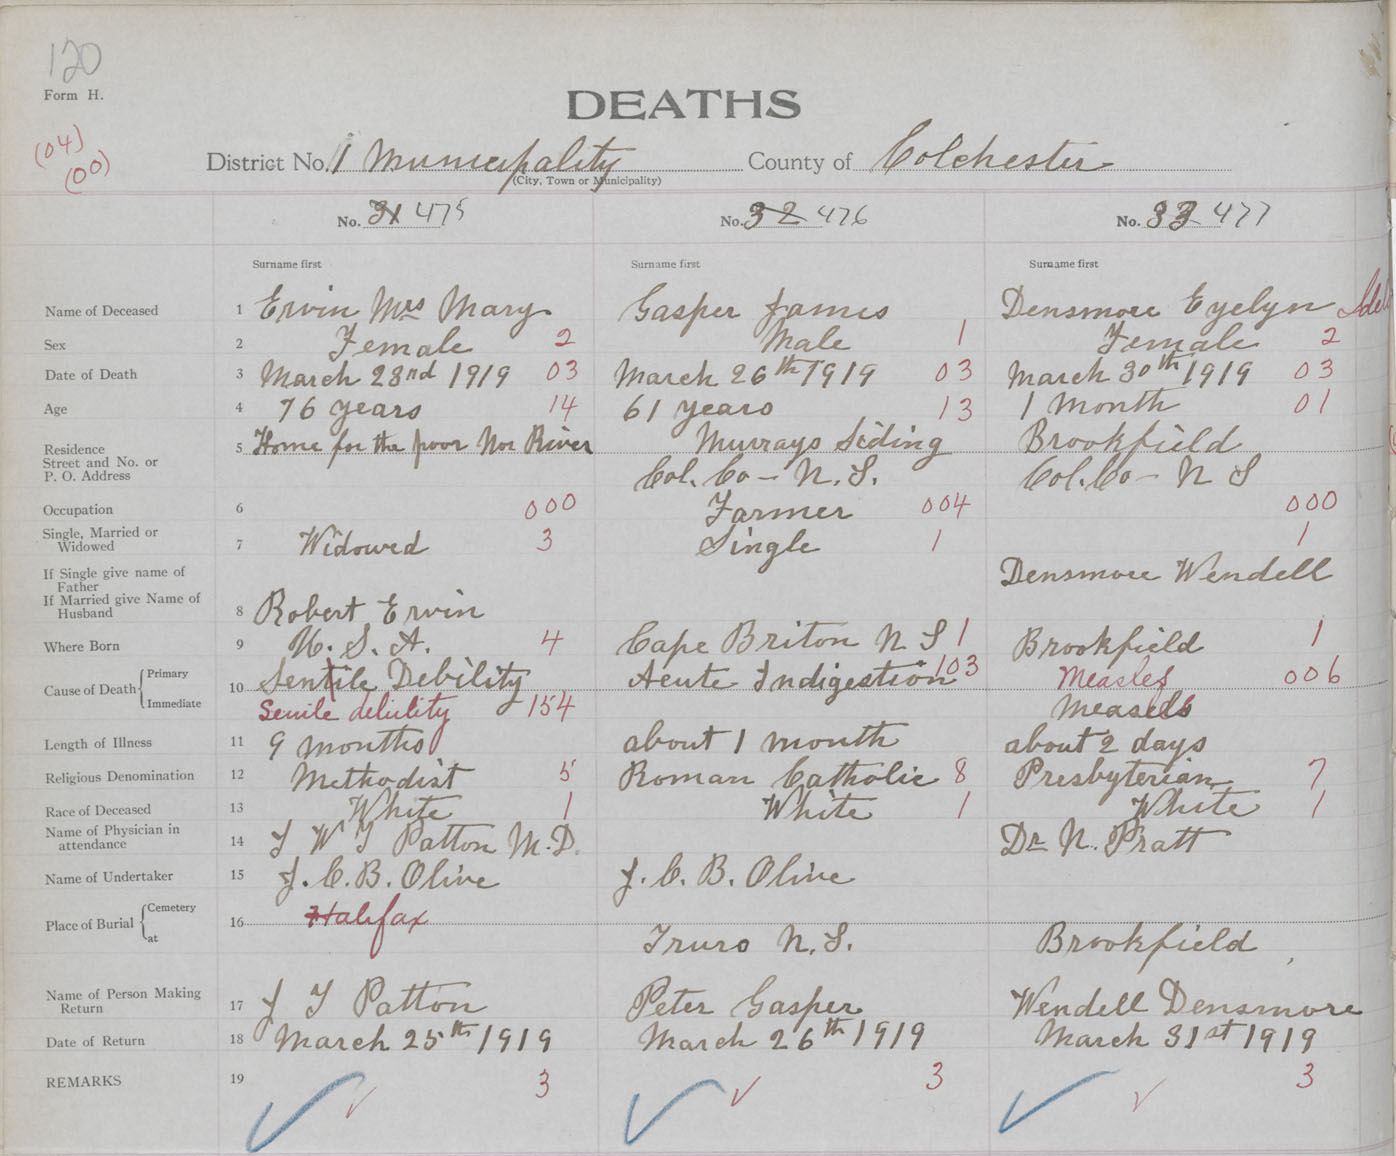 120
Form H.
DEATHS
(04)
(00)
District No. 1 Municipality County of Colchester
(City, Town or Municipality)
No. 31 475 No. 32 476 No. 33 477
Surname first Surname first Surname first
Name of Deceased 1 Ervin Mrs Mary Gasper James Densmore Eyelyn
Sex 2 Female 2 Male 1 Female 2
Date of Death 3 March 23rd 1919 03 March 26th 1919 03 March 30th 1919 03
Age 4 76 years 14 61 years 13 1 month 01
Residence
Street and No. or
P. O. Address
5 Home for the poor Nor River Murrays Siding Brookfield
Col. Co - N. S. Col. Co - N S
Occupation 6 000 Farmer 004 000
Single, Married or
Widowed
7 Widowed 3 Single 1 1
If Single give name of
Father
Densmore Wendell
If Married give Name of
Husband
8 Robert Ervin
Where Born 9 U. S. A. 4 Cape Briton N S 1 Brookfield 1
Cause of Death { Primary
Immediate
10 Sentile Debility Acute Indigestion 103 Measles 006
Senile debility 154 Measels
Length of Illness 11 9 months about 1 month about 2 days
Religious Denomination 12 Methodist 5 Roman Catholic 8 Presbyterian 7
Race of Deceased 13 White 1 White 1 White 1
Name of Physician in
attendance
14 J W T Patton M.D. Dr N. Pratt
Name of Undertaker 15 J. C. B. Olive J. C. B. Olive
Place of Burial { Cemetery
at
16 Halifax
Truro N. S. Brookfield
Name of Person Making
Return
17 J T Patton Peter Gasper Wendell Densmore
Date of Return 18 March 25th 1919 March 26th 1919 March 31st 1919
REMARKS 19 3 3 3